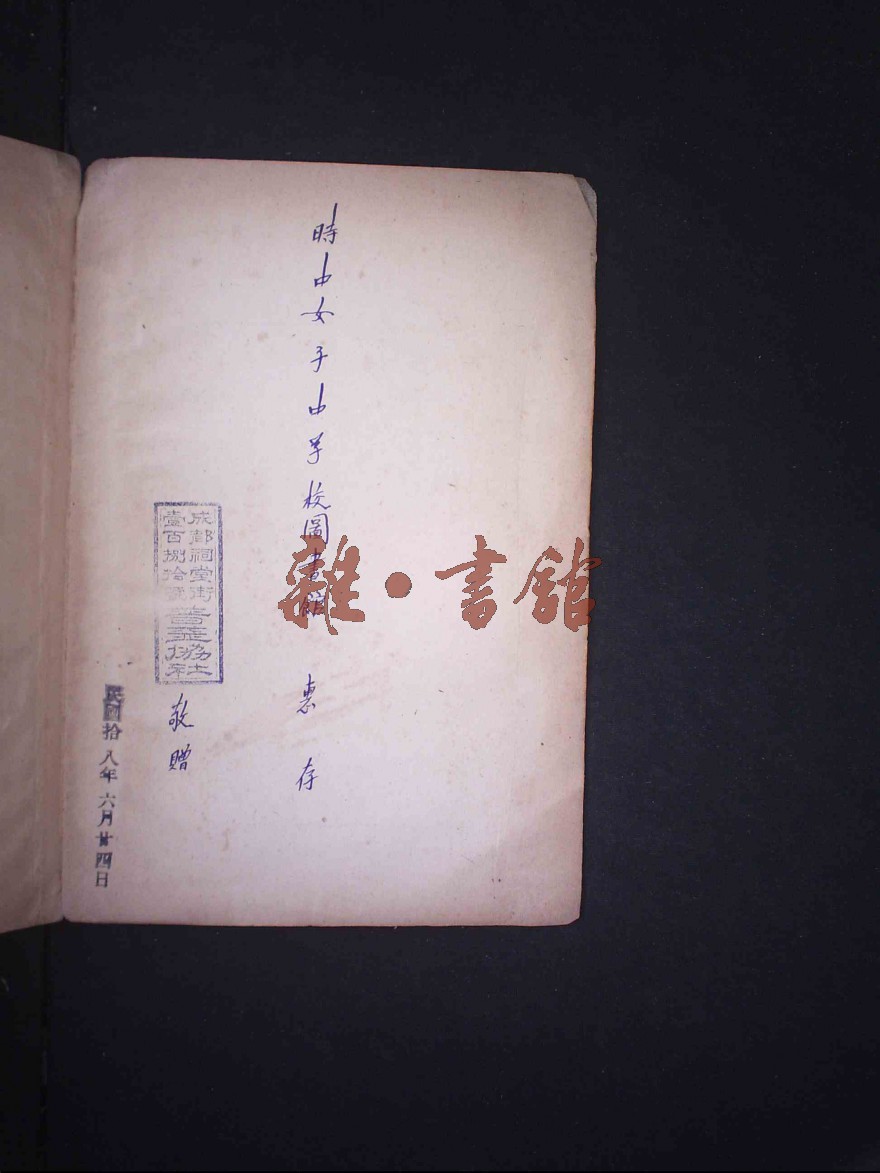 時中女子中学校圖書館 惠存
成都祠堂街
壹百捌拾號
普益協社
敬贈
民國拾八年六月廿四日
雜·書館